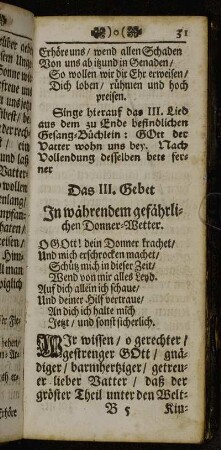 )o( 31
Erhöre uns / wend allen Schaden
Von uns ab itzund in Genaden /
So wollen wir dir Ehr erweisen /
Dich loben / rühmen und hoch
preisen.
Singe hierauf das III. Lied
aus dem zu Ende befindlichen
Gesang-Büchlein : GOtt der
Vatter wohn uns bey. Nach
Vollendung desselben bete fer-
ner
Das III. Gebet
In währendem gefährli-
chen Donner-Wetter.
O GOtt! dein Donner krachet /
Und mich erschrocken machet /
Schütz mich in dieser Zeit /
Wend von mir alles Leyd.
Auf dich allein ich schaue /
Und deiner Hilf vertraue /
An dich ich halte mich
Jetzt / und sonst sicherlich.
WIr wissen / o gerechter /
gestrenger GOtt / gnä-
diger / barmhertziger / getreu-
er lieber Vatter / daß der
gröster Theil unter den Welt-
B 5 Kin-